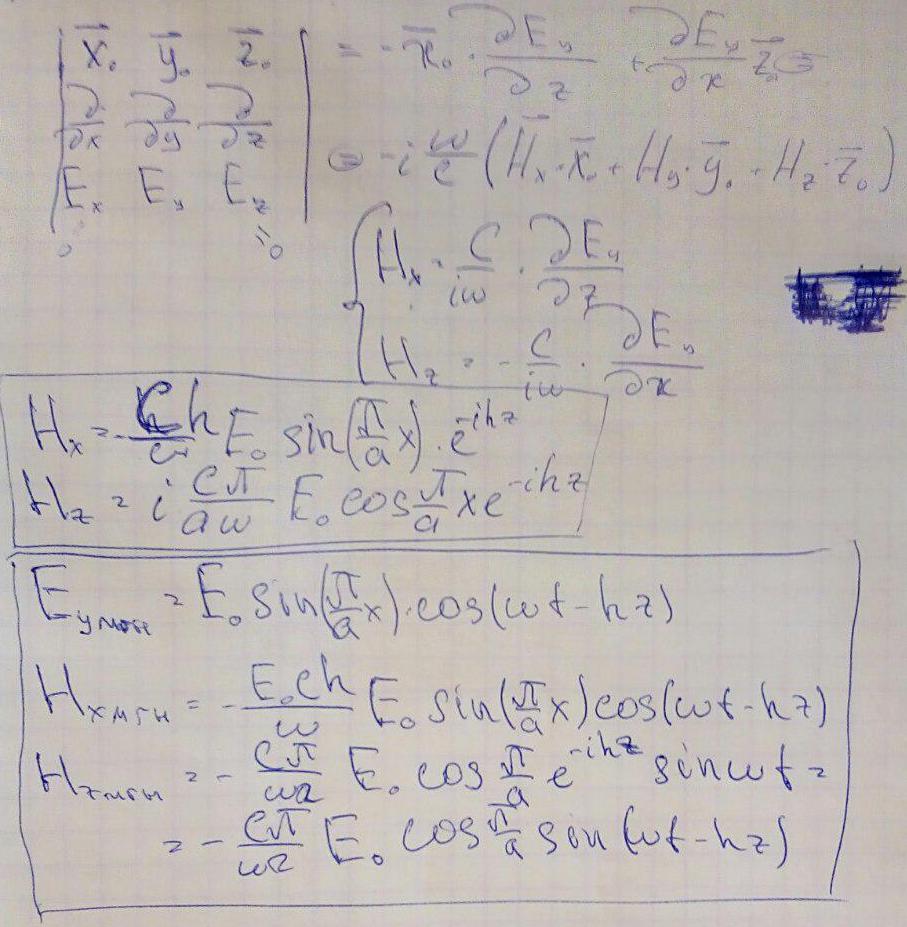 | x̄₀ ȳ₀ z̄₀ | = - x̄₀ · ∂E_y/∂z + ∂E_y/∂x z̄₀ ⊜
| ∂/∂x ∂/∂y ∂/∂z |
⊜ -i ω/c (H̄_x · x̄₀ + H_y · ȳ₀ + H_z · z̄₀)
| E_x E_y E_z |
0 = 0
H_x = c/iω · ∂E_y/∂z
H_z = - c/iω · ∂E_y/∂x
H_x = - ch/ω E₀ sin(π/a x) · e^{-ihz}
H_z = i cπ/aω E₀ cos π/a x e^{-ihz}
E_{yмгн} = E₀ sin(π/a x) · cos(ωt - hz)
H_{xмгн} = - E₀ch/ω E₀ sin(π/a x) cos(ωt - hz)
H_{zмгн} = - cπ/ωa E₀ cos π/a e^{-ihz} sin ωt =
= - cπ/ωa E₀ cos π/a sin(ωt - hz)